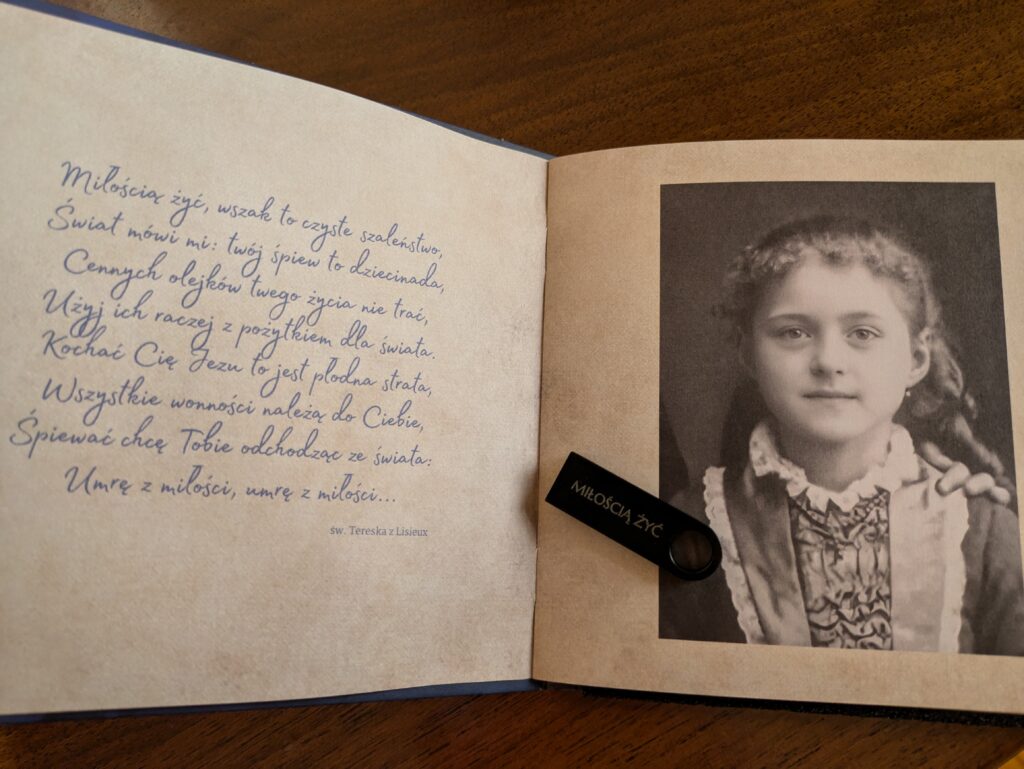 Miłością żyć, wszak to czyste szaleństwo,
Świat mówi mi: twój śpiew to dziecinada,
Cennych olejków twego życia nie trać,
Użyj ich raczej z pożytkiem dla świata.
Kochać Cię Jezu to jest płodna strata,
Wszystkie wonności należą do Ciebie,
Śpiewać chcę Tobie odchodząc ze świata:
Umrę z miłości, umrę z miłości...
św. Tereska z Lisieux
MIŁOŚCIĄ ŻYĆ